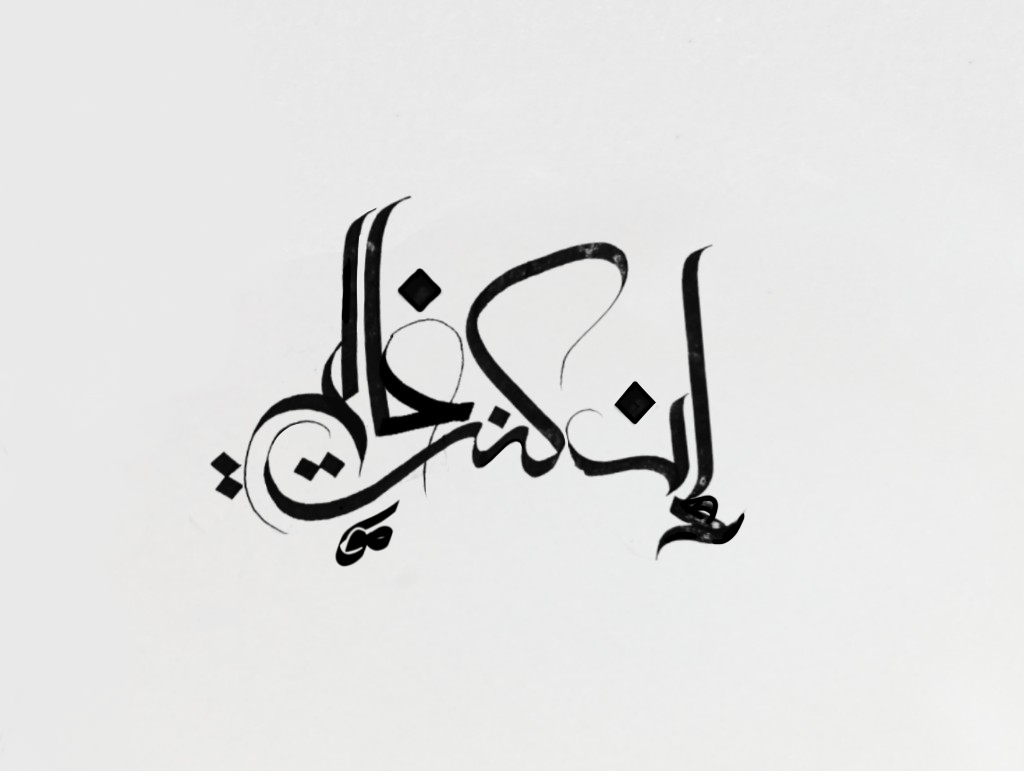 إن كنت خالي